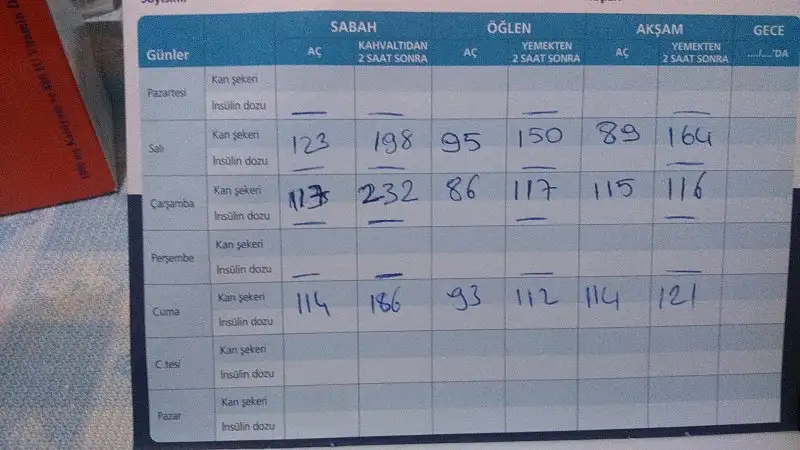 SABAH ÖĞLEN AKŞAM GECE
Günler AÇ KAHVALTIDAN 2 SAAT SONRA AÇ YEMEKTEN 2 SAAT SONRA AÇ YEMEKTEN 2 SAAT SONRA ..../....'DA
Pazartesi Kan şekeri
İnsülin dozu
Salı Kan şekeri 123 198 95 150 89 164
İnsülin dozu
Çarşamba Kan şekeri 117 232 86 117 115 116
İnsülin dozu
Perşembe Kan şekeri
İnsülin dozu
Cuma Kan şekeri 114 186 93 112 114 121
İnsülin dozu
C.tesi Kan şekeri
İnsülin dozu
Pazar Kan şekeri
İnsülin dozu